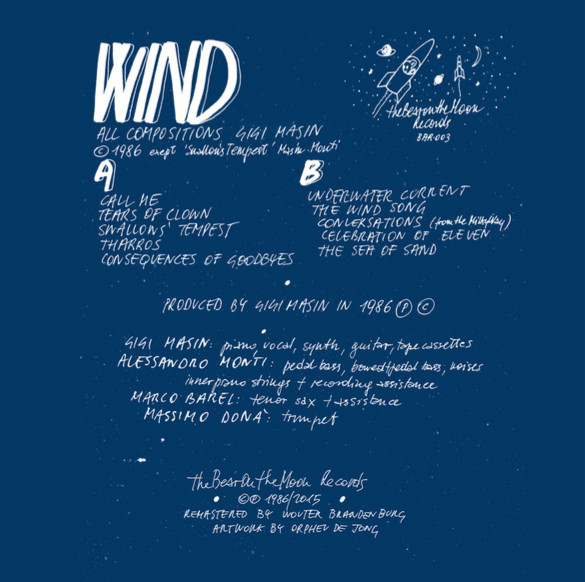 WIND
theBearOnTheMoon
Records
BAR-003
ALL COMPOSITIONS GIGI MASIN
© 1986 exept 'Swallows'Tempest' Masin-Monti
A
CALL ME
TEARS OF CLOWN
SWALLOWS' TEMPEST
THARROS
CONSEQUENCES OF GOODBYES
B
UNDERWATER CURRENT
THE WIND SONG
CONVERSATIONS (from the MilkyWay)
CELEBRATION OF ELEVEN
THE SEA OF SAND
PRODUCED BY GIGI MASIN IN 1986 Ⓟ ©
GIGI MASIN: piano, vocal, synth, guitar, tape cassettes
ALESSANDRO MONTI: pedal bass, bowed/pedal bass, noises
inner piano strings + recording assistance
MARCO BAREL: tenor sax + assistance
MASSIMO DONÀ: trumpet
theBearOntheMoon Records
©Ⓟ 1986/2015
REMASTERED BY WOUTER BRANDENBURG
ARTWORK BY ORPHEU DE JONG